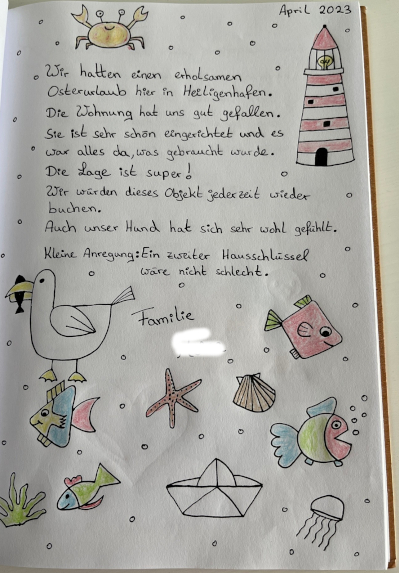 April 2023
Wir hatten einen erholsamen
Osterurlaub hier in Heiligenhafen.
Die Wohnung hat uns gut gefallen.
Sie ist sehr schön eingerichtet und es
war alles da, was gebraucht wurde.
Die Lage ist super!
Wir würden dieses Objekt jederzeit wieder
buchen.
Auch unser Hund hat sich sehr wohl gefühlt.
Kleine Anregung: Ein zweiter Hausschlüssel
wäre nicht schlecht.
Familie